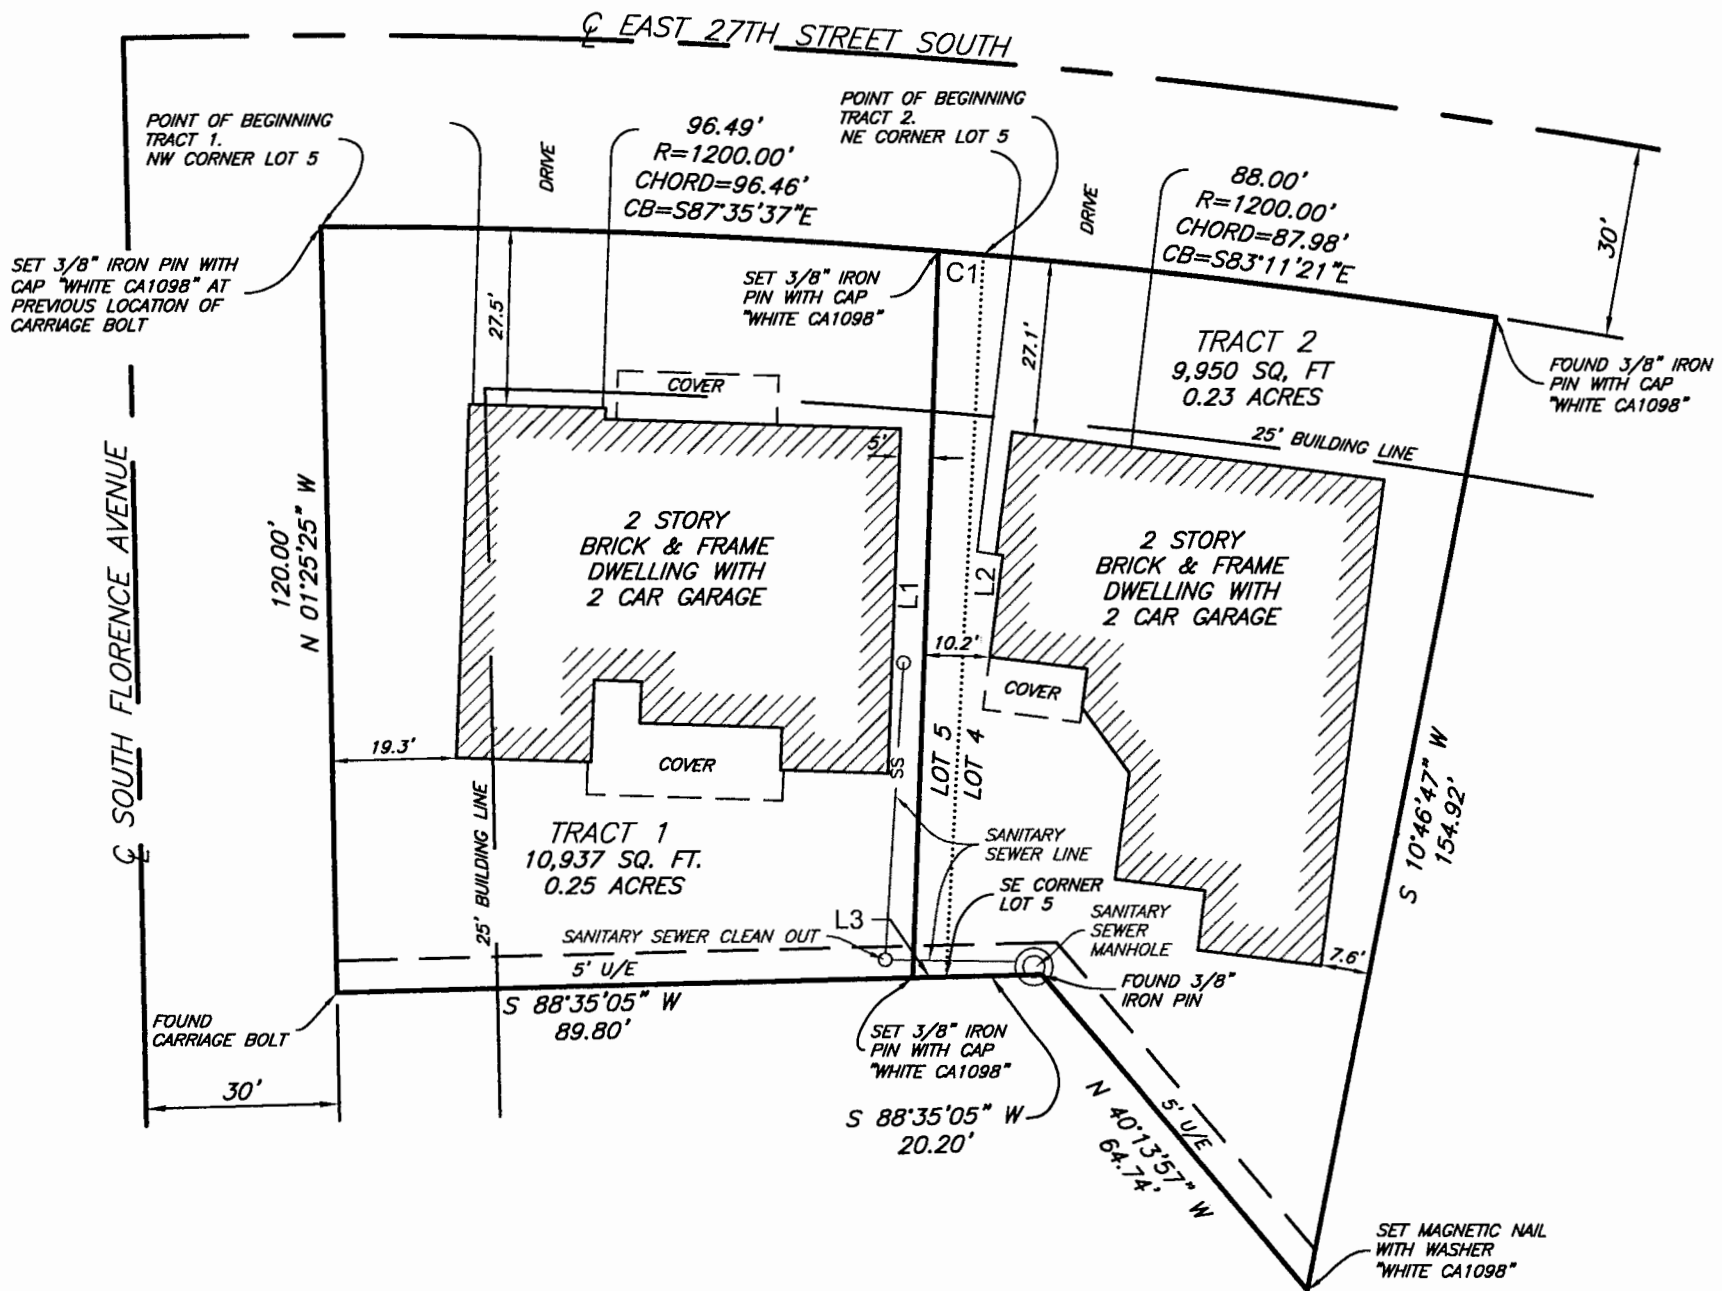 ℄ EAST 27TH STREET SOUTH
POINT OF BEGINNING
TRACT 1.
NW CORNER LOT 5
DRIVE
96.49'
R=1200.00'
CHORD=96.46'
CB=S87°35'37"E
POINT OF BEGINNING
TRACT 2.
NE CORNER LOT 5
DRIVE
88.00'
R=1200.00'
CHORD=87.98'
CB=S83°11'21"E
30'
SET 3/8" IRON PIN WITH
CAP "WHITE CA1098" AT
PREVIOUS LOCATION OF
CARRIAGE BOLT
27.5'
SET 3/8" IRON
PIN WITH CAP
"WHITE CA1098"
C1
27.1'
TRACT 2
9,950 SQ, FT
0.23 ACRES
FOUND 3/8" IRON
PIN WITH CAP
"WHITE CA1098"
COVER
5'
25' BUILDING LINE
℄ SOUTH FLORENCE AVENUE
120.00'
N 01°25'25" W
2 STORY
BRICK & FRAME
DWELLING WITH
2 CAR GARAGE
L1
L2
2 STORY
BRICK & FRAME
DWELLING WITH
2 CAR GARAGE
10.2'
COVER
19.3'
COVER
SS
LOT 5
LOT 4
S 10°46'47" W
154.92'
25' BUILDING LINE
TRACT 1
10,937 SQ. FT.
0.25 ACRES
SANITARY
SEWER LINE
SE CORNER
LOT 5
L3
SANITARY
SEWER
MANHOLE
SANITARY SEWER CLEAN OUT
5' U/E
7.6'
FOUND 3/8"
IRON PIN
S 88°35'05" W
89.80'
FOUND
CARRIAGE BOLT
SET 3/8" IRON
PIN WITH CAP
"WHITE CA1098"
30'
S 88°35'05" W
20.20'
N 40°13'57" W
64.74'
5' U/E
SET MAGNETIC NAIL
WITH WASHER
"WHITE CA1098"